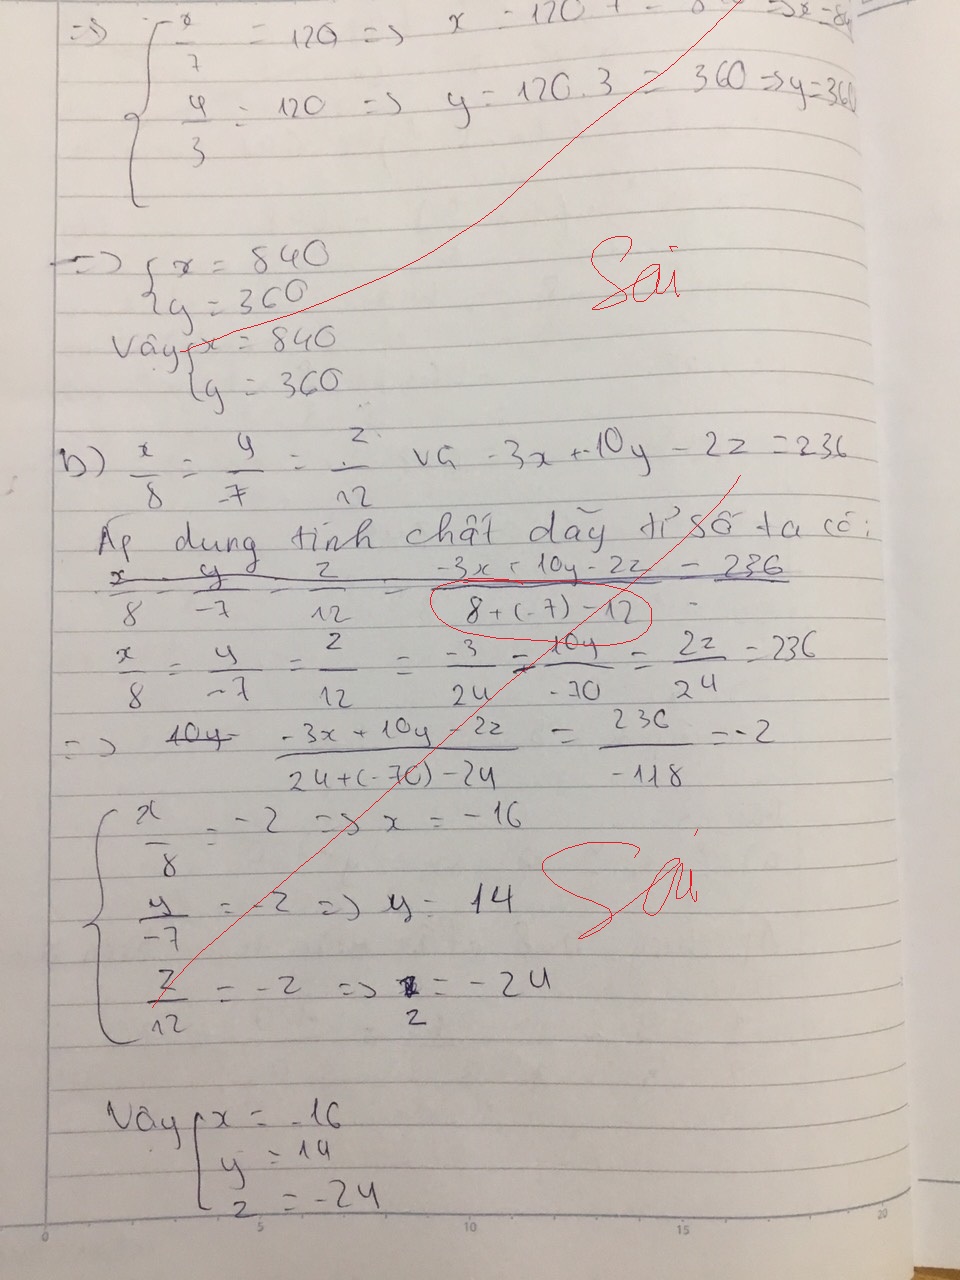 => { x/7 = 120 => x = 120 . = 8 => x = 84
y/3 = 120 => y = 120.3 = 360 => y = 360
=> { x = 840
y = 360
Sai
Vậy { x = 840
y = 360
b) x/8 = y/-7 = z/12 và -3x + 10y - 2z = 236
Áp dụng tính chất dãy tỉ số ta có:
x/8 = y/-7 = z/12 = -3x + 10y - 2z / 8 + (-7) - 12 = 236
x/8 = y/-7 = z/12 = -3/24 = 10y/-70 = 2z/24 = 236
=> 10y -3x + 10y - 2z / 24 + (-70) - 24 = 236/-118 = -2
{ x/8 = -2 => x = -16
y/-7 = -2 => y = 14
Sai
z/12 = -2 => z = -24
Vậy { x = -16
y = 14
z = -24
0 5 10 15 20